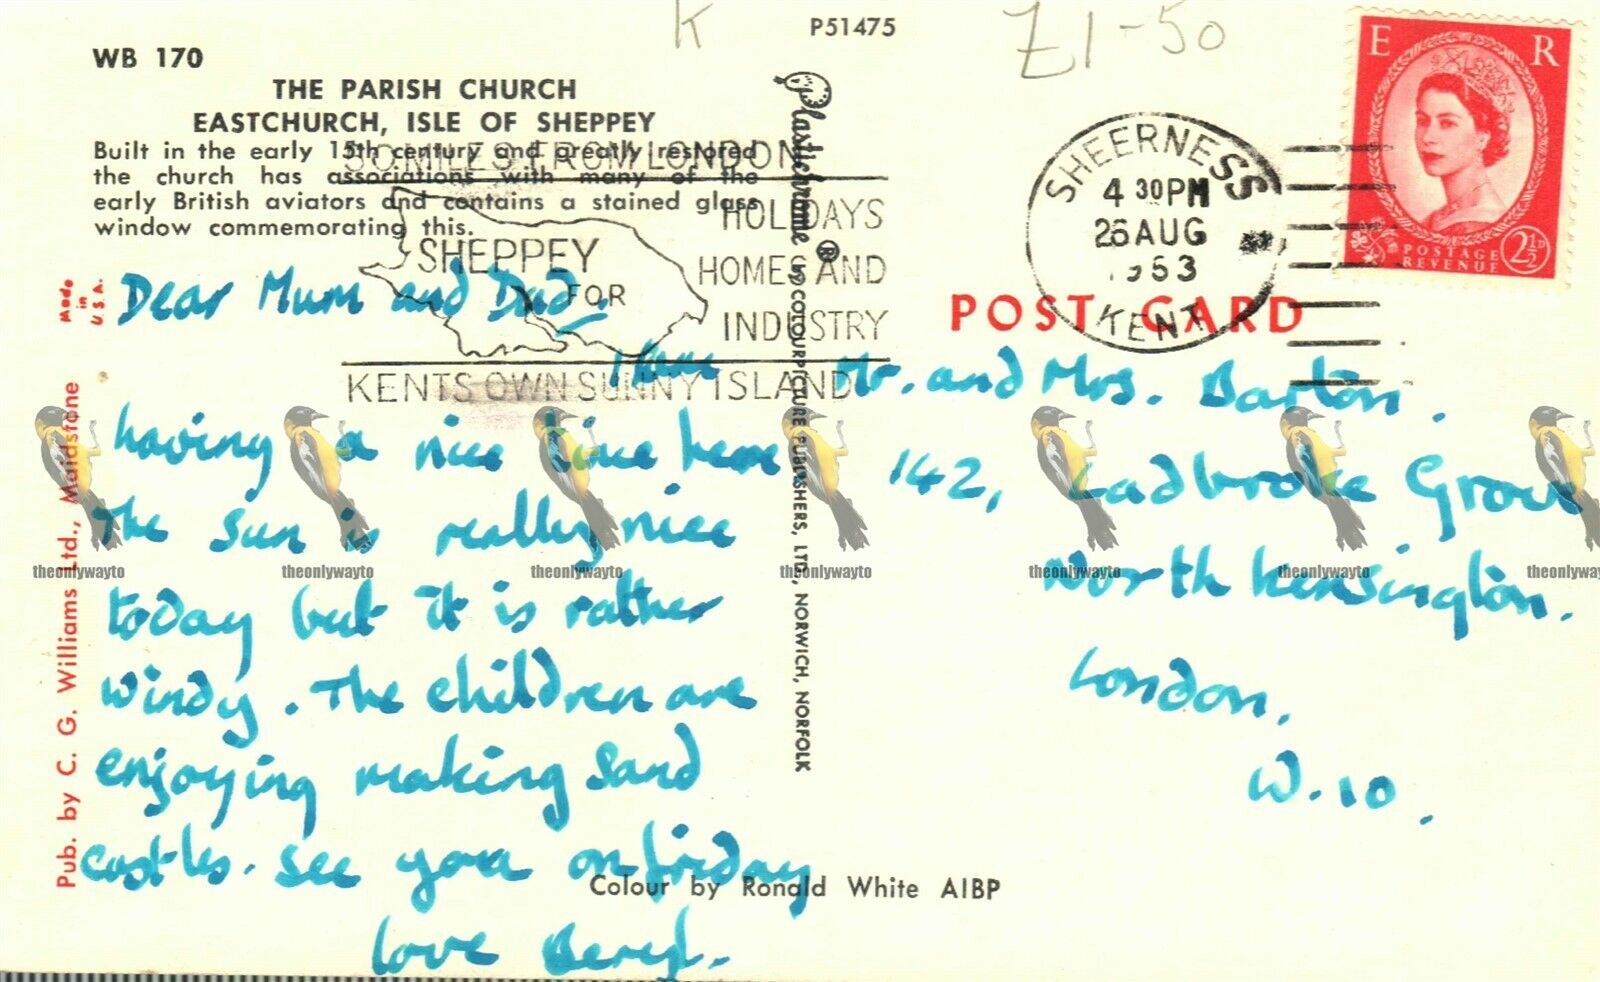 K
£1-50
P51475
WB 170
THE PARISH CHURCH
EASTCHURCH, ISLE OF SHEPPEY
Built in the early 15th century and greatly restored
the church has associations with many of the
early British aviators and contains a stained glass
window commemorating this.
30 MILES FROM LONDON
SHEPPEY
FOR
HOLIDAYS
HOMES AND
INDUSTRY
KENTS OWN SUNNY ISLAND
SHEERNESS
4 30PM
26 AUG
1963
KENT
E R
POSTAGE
REVENUE
2½D
Made
in
U.S.A.
Pub. by C. G. Williams Ltd., Maidstone
Plastichrome ® by COLOURPICTURE PUBLISHERS, LTD., NORWICH, NORFOLK
POST CARD
Dear Mum and Dad.
having a nice time here
The sun is really nice
today but it is rather
windy. The children are
enjoying making sand
castles. See you on friday
love Beryl.
Mr. and Mrs. Barton.
142, Ladbroke Grove
North Kensington.
London.
W.10.
Colour by Ronald White AIBP
theonlywayto theonlywayto theonlywayto theonlywayto theonlywayto theonlywayto theonlyway